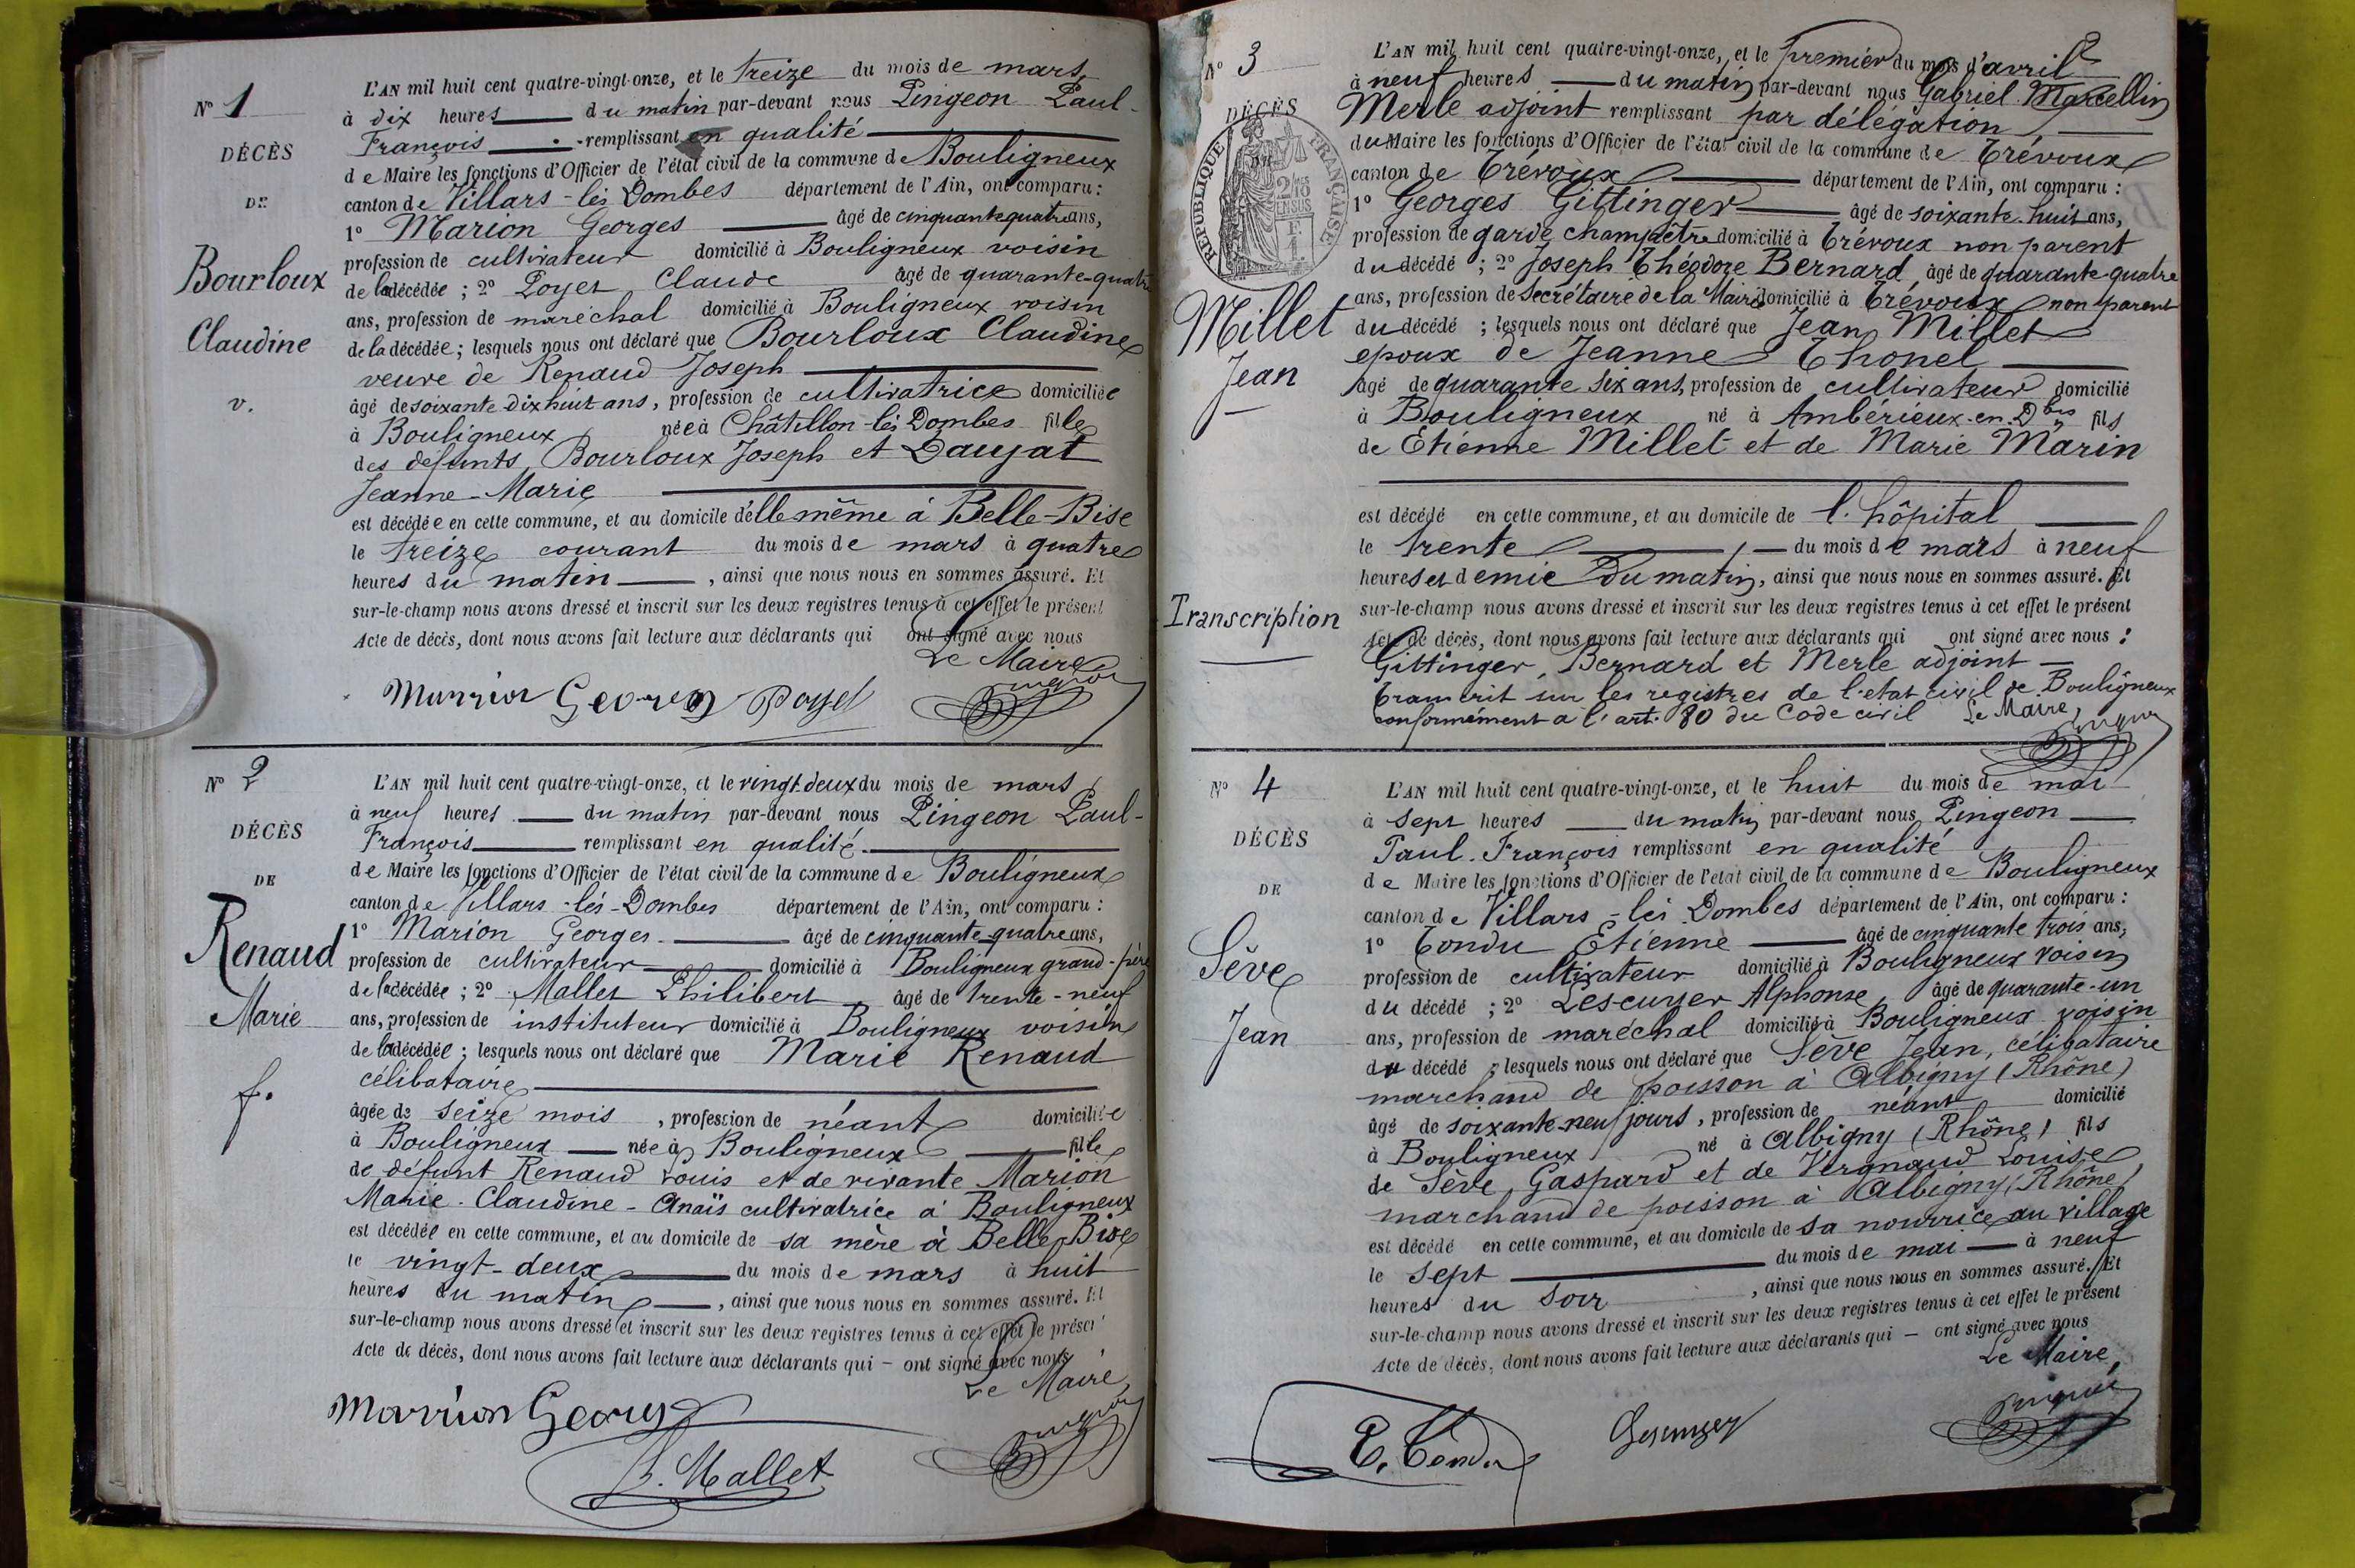 N° 1
DÉCÈS
DE
Bourloux
Claudine
v.
L'AN mil huit cent quatre-vingt-onze, et le treize du mois de mars
à dix heures du matin par-devant nous Pingeon Paul-
François remplissant en qualité
de Maire les fonctions d'Officier de l'état civil de la commune de Bouligneux
canton de Villars-lès Dombes département de l'Ain, ont comparu :
1° Marion Georges âgé de cinquante quatre ans,
profession de cultivateur domicilié à Bouligneux voisin
de la décédée ; 2° Poyet Claude âgé de quarante-quatre
ans, profession de maréchal domicilié à Bouligneux voisin
de la décédée ; lesquels nous ont déclaré que Bourloux Claudine
veuve de Renaud Joseph
âgé de soixante dix huit ans, profession de cultivatrice domiciliée
à Bouligneux née à Châtillon-lès Dombes fille
des défunts Bourloux Joseph et Daujat
Jeanne-Marie
est décédée en cette commune, et au domicile d'elle même à Belle-Bise
le treize courant du mois de mars à quatre
heures du matin , ainsi que nous nous en sommes assuré. Et
sur-le-champ nous avons dressé et inscrit sur les deux registres tenus à cet effet le présent
Acte de décès, dont nous avons fait lecture aux déclarants qui ont signé avec nous
Le Maire
Marrion Georges Poyet Pingeon
N° 2
DÉCÈS
DE
Renaud
Marie
f.
L'AN mil huit cent quatre-vingt-onze, et le vingt-deux du mois de mars
à neuf heures du matin par-devant nous Pingeon Paul-
François remplissant en qualité
de Maire les fonctions d'Officier de l'état civil de la commune de Bouligneux
canton de Villars-lès-Dombes département de l'Ain, ont comparu :
1° Marion Georges âgé de cinquante-quatre ans,
profession de cultivateur domicilié à Bouligneux grand-père
de la décédée ; 2° Mallet Philibert âgé de trente-neuf
ans, profession de instituteur domicilié à Bouligneux voisin
de la décédée ; lesquels nous ont déclaré que Marie Renaud
célibataire
âgée de seize mois , profession de néant domiciliée
à Bouligneux née à Bouligneux fille
de défunt Renaud Louis et de vivante Marion
Marie-Claudine-Anaïs cultivatrice à Bouligneux
est décédée en cette commune, et au domicile de sa mère à Belle Bise
le vingt-deux du mois de mars à huit
heures du matin , ainsi que nous nous en sommes assuré. Et
sur-le-champ nous avons dressé et inscrit sur les deux registres tenus à cet effet le présen
Acte de décès, dont nous avons fait lecture aux déclarants qui – ont signé avec nous
Le Maire
Marrion Georges Pingeon
P. Mallet
N° 3
DÉCÈS
RÉPUBLIQUE FRANÇAISE
Millet
Jean
Transcription
L'AN mil huit cent quatre-vingt-onze, et le premier du mois d'avril
à neuf heures du matin par-devant nous Gabriel Marcellin
Merle adjoint remplissant par délégation
du Maire les fonctions d'Officier de l'état civil de la commune de Trévoux
canton de Trévoux département de l'Ain, ont comparu :
1° Georges Gittinger âgé de soixante-huit ans,
profession de garde champêtre domicilié à Trévoux non parent
du décédé ; 2° Joseph Théodore Bernard âgé de quarante-quatre
ans, profession de Secrétaire de la Mairie domicilié à Trévoux non parent
du décédé ; lesquels nous ont déclaré que Jean Millet
époux de Jeanne Thonel
âgé de quarante six ans, profession de cultivateur domicilié
à Bouligneux né à Ambérieux-en-Dbes fils
de Etienne Millet et de Marie Marin
est décédé en cette commune, et au domicile de l'hôpital
le trente du mois de mars à neuf
heures et demie du matin, ainsi que nous nous en sommes assuré. Et
sur-le-champ nous avons dressé et inscrit sur les deux registres tenus à cet effet le présent
Acte de décès, dont nous avons fait lecture aux déclarants qui ont signé avec nous :
Gittinger, Bernard et Merle adjoint
Transcrit sur les registres de l'etat civil de Bouligneux
conformément à l'art. 80 du Code civil Le Maire,
Pingeon
N° 4
DÉCÈS
DE
Sève
Jean
L'AN mil huit cent quatre-vingt-onze, et le huit du mois de mai
à sept heures du matin par-devant nous Pingeon
Paul-François remplissant en qualité
de Maire les fonctions d'Officier de l'etat civil de la commune de Bouligneux
canton de Villars-lès Dombes département de l'Ain, ont comparu :
1° Tondu Etienne âgé de cinquante trois ans,
profession de cultivateur domicilié à Bouligneux voisin
du décédé ; 2° Lescuyer Alphonse âgé de quarante-un
ans, profession de maréchal domicilié à Bouligneux voisin
du décédé ; lesquels nous ont déclaré que Sève Jean, célibataire
marchand de poisson à Albigny (Rhône)
âgé de soixante-neuf jours, profession de néant domicilié
à Bouligneux né à Albigny (Rhône) fils
de Sève Gaspard et de Vergnaud Louise
marchand de poisson à Albigny (Rhône)
est décédé en cette commune, et au domicile de sa nourrice au village
le sept du mois de mai à neuf
heures du soir , ainsi que nous nous en sommes assuré. Et
sur-le-champ nous avons dressé et inscrit sur les deux registres tenus à cet effet le présent
Acte de décès, dont nous avons fait lecture aux déclarants qui – ont signé avec nous
Le Maire,
E. Tondu Lescuyer Pingeon